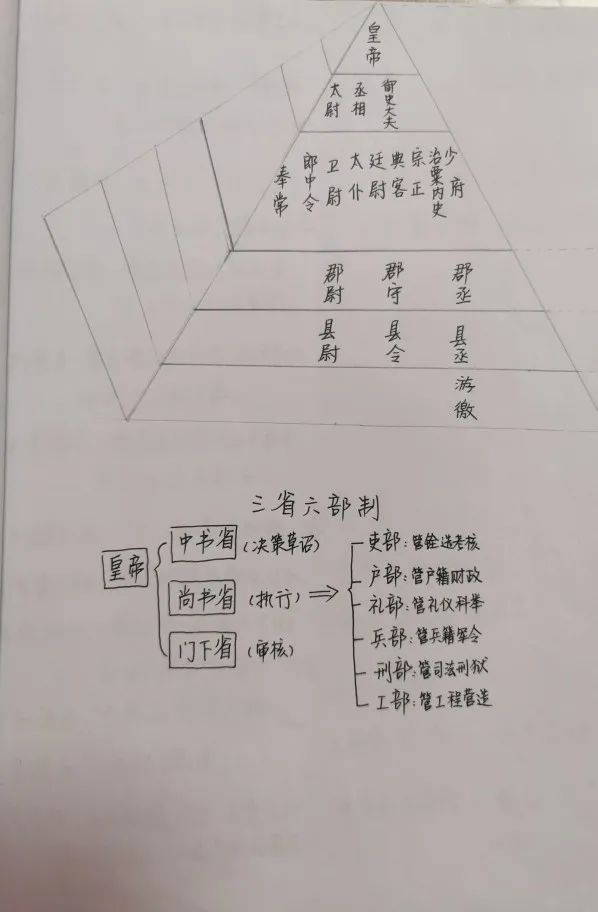 皇帝
太尉 丞相 御史大夫
奉常 郎中令 卫尉 太仆 廷尉 典客 宗正 治粟内史 少府
郡尉 郡守 郡丞
县尉 县令 县丞
游徼
三省六部制
皇帝
中书省 (决策草诏)
尚书省 (执行)
门下省 (审核)
吏部:管铨选考核
户部:管户籍财政
礼部:管礼仪科举
兵部:管兵籍军令
刑部:管司法刑狱
工部:管工程营造